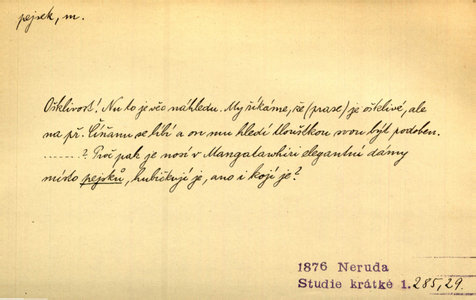 pejsek, m.
Ošklivost! Nu to je věc náhledu. My říkáme, že (prase) je ošklivé, ale
na př. Číňanu se líbí a on mu hledí tloušťkou svou být podoben.
.......? Proč pak je nosí v Mangatawhiri elegantní dámy
místo pejsků, hubičkují je, ano i kojí je?
1876 Neruda
Studie krátké 1. 285,29